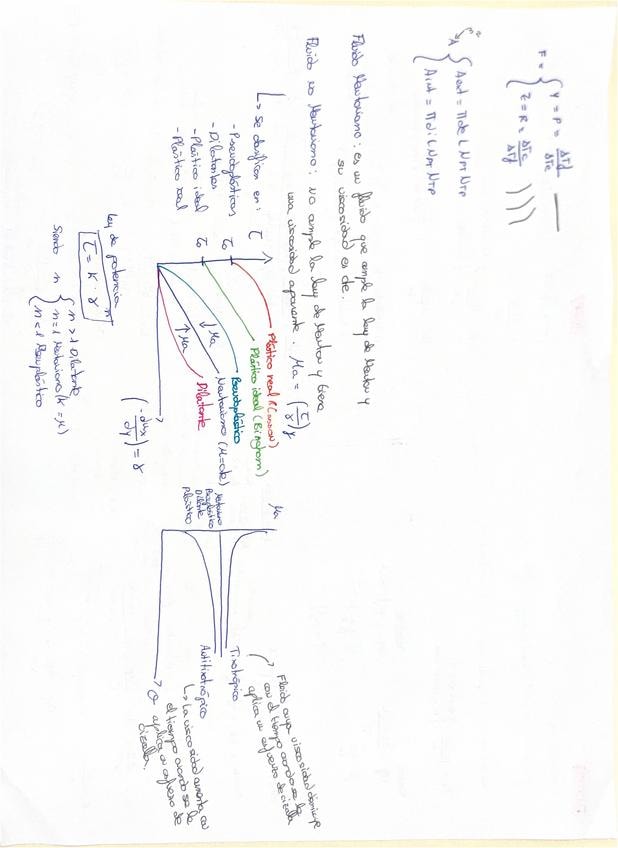 F = { Y = P = ΔTf / ΔTc
Z = R = ΔTc / ΔTf
A { Aext = π de L NPT NTP
Aint = π di L NPT NTP
Fluido Newtoniano: es un fluido que cumple la ley de Newton y
su viscosidad es cte.
Fluido no Newtoniano: no cumple la ley de Newton y tiene
una viscosidad aparente. μa = (τ/γ)γ
↳ se clasifican en:
- Pseudoplásticos
- Dilatantes
- Plástico ideal
- Plástico real
τ
τo
τo
Plástico real (Casson)
Plástico ideal (Bingham)
Pseudoplástico
Newtoniano (μ=cte)
Dilatante
↓ μa
↑ μa
(-dux/dy) = γ
Ley de potencia
τ = K · γⁿ
Siendo n { n > 1 Dilatante
n = 1 Newtoniano (K = μ)
n < 1 Pseudoplástico
μa
Newtoniano
Pseudoplástico
Dilatante
Plástico
Tixotrópico
Antitixotrópico
θ
Fluido cuya viscosidad disminuye
con el tiempo cuando se le
aplica un esfuerzo de cizalla
↳ La viscosidad aumenta con
el tiempo cuando se le
aplica un esfuerzo de
cizalla.